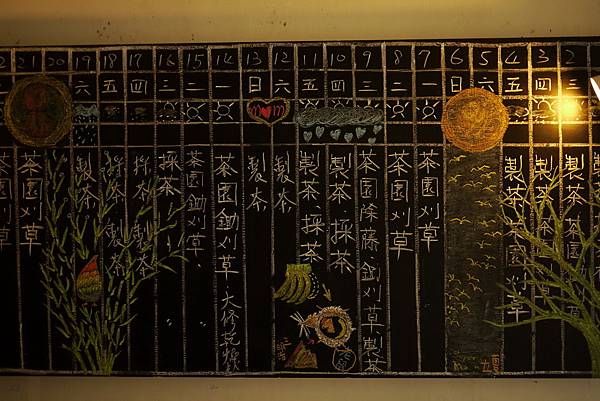 2 三 製茶.茶園刈草
3 四 製茶.茶園刈草
4 五 製茶.茶園刈草
5 六
6 日
7 一 茶園刈草
8 二 茶園刈草
9 三 茶園除藤鋤刈草製茶
10 四 製茶.採茶
11 五 製茶.採茶
12 六 製茶
13 日 製茶
14 一 茶園鋤刈草.大修乾燥
15 二 茶園鋤刈草.
16 三 採茶
17 四 採茶.製茶
18 五 採茶.製茶
19 六 製茶
20
21 茶園刈草